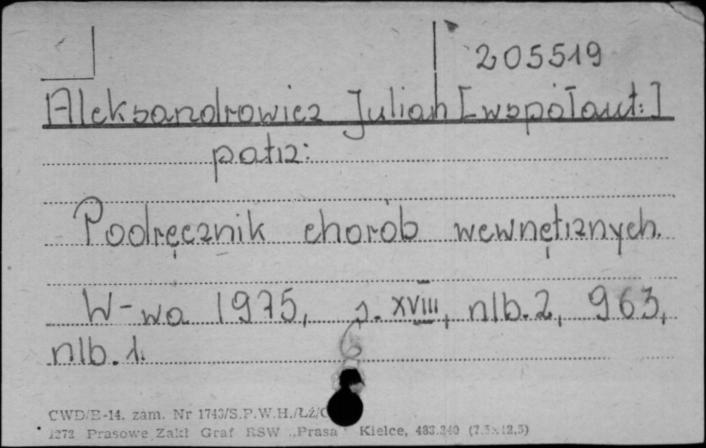 205519
Aleksandrowicz Julian [współaut.]
patrz:
Podręcznik chorób wewnętrznych.
W-wa 1975, s. XVIII, nlb. 2, 963,
nlb. 1.
CWD/E-14. zam. Nr 1743/S.P.W.H./Łź/
1272 Prasowe Zakł Graf RSW „Prasa" Kielce, 483.240 (7.5x12,5)